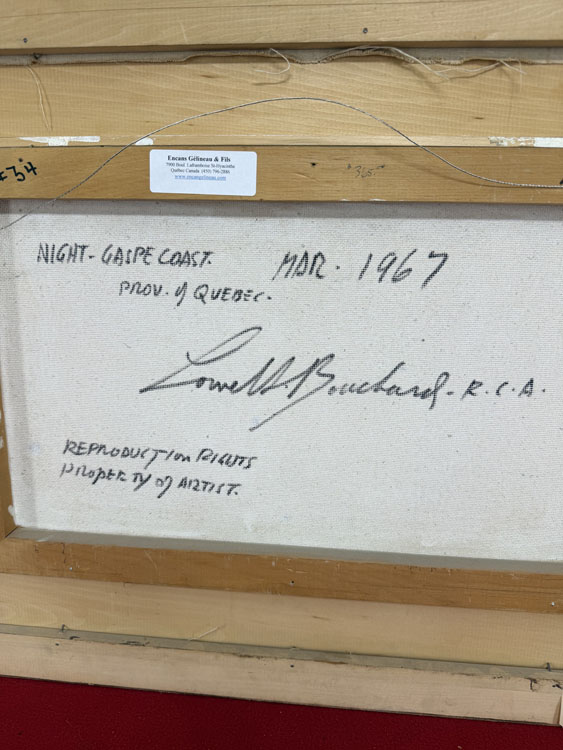 #34
Encans Gélineau & Fils
7900 Boul. Laframboise St-Hyacinthe
Québec Canada (450) 796-2886
www.encangelineau.com
365
NIGHT - GASPE COAST.
MAR. 1967
PROV. of QUEBEC.
Bouchard - R.C.A.
REPRODUCTION RIGHTS
PROPERTY of ARTIST.